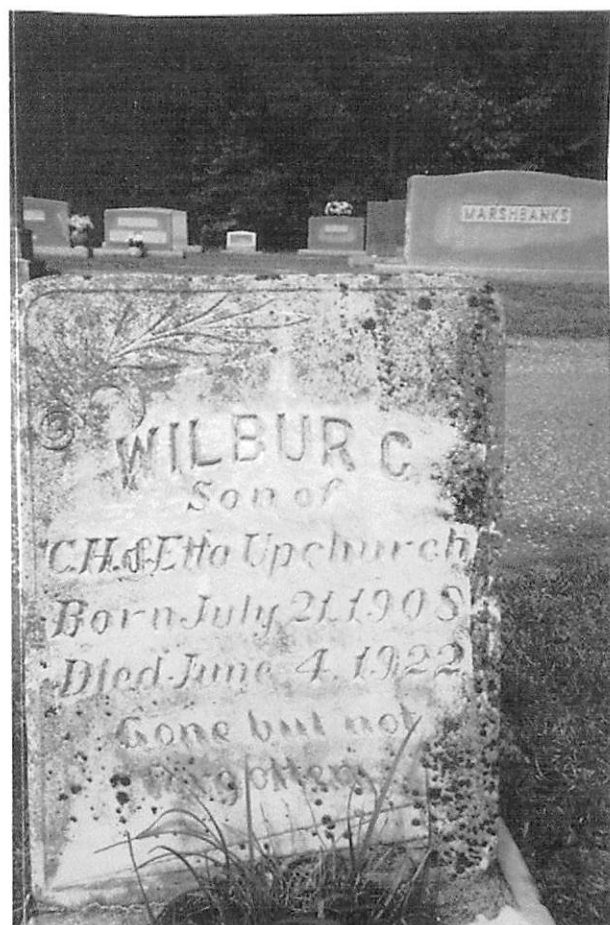 MARSHBANKS
WILBUR C
Son of
C.H. & Etta Upchurch
Born July 21, 1908
Died June 4, 1922
Gone but not
forgotten